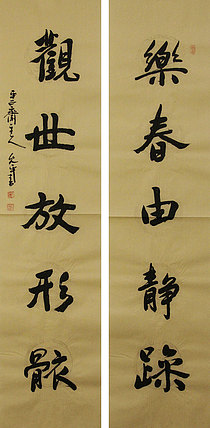 樂春由靜躁
觀世放形骸